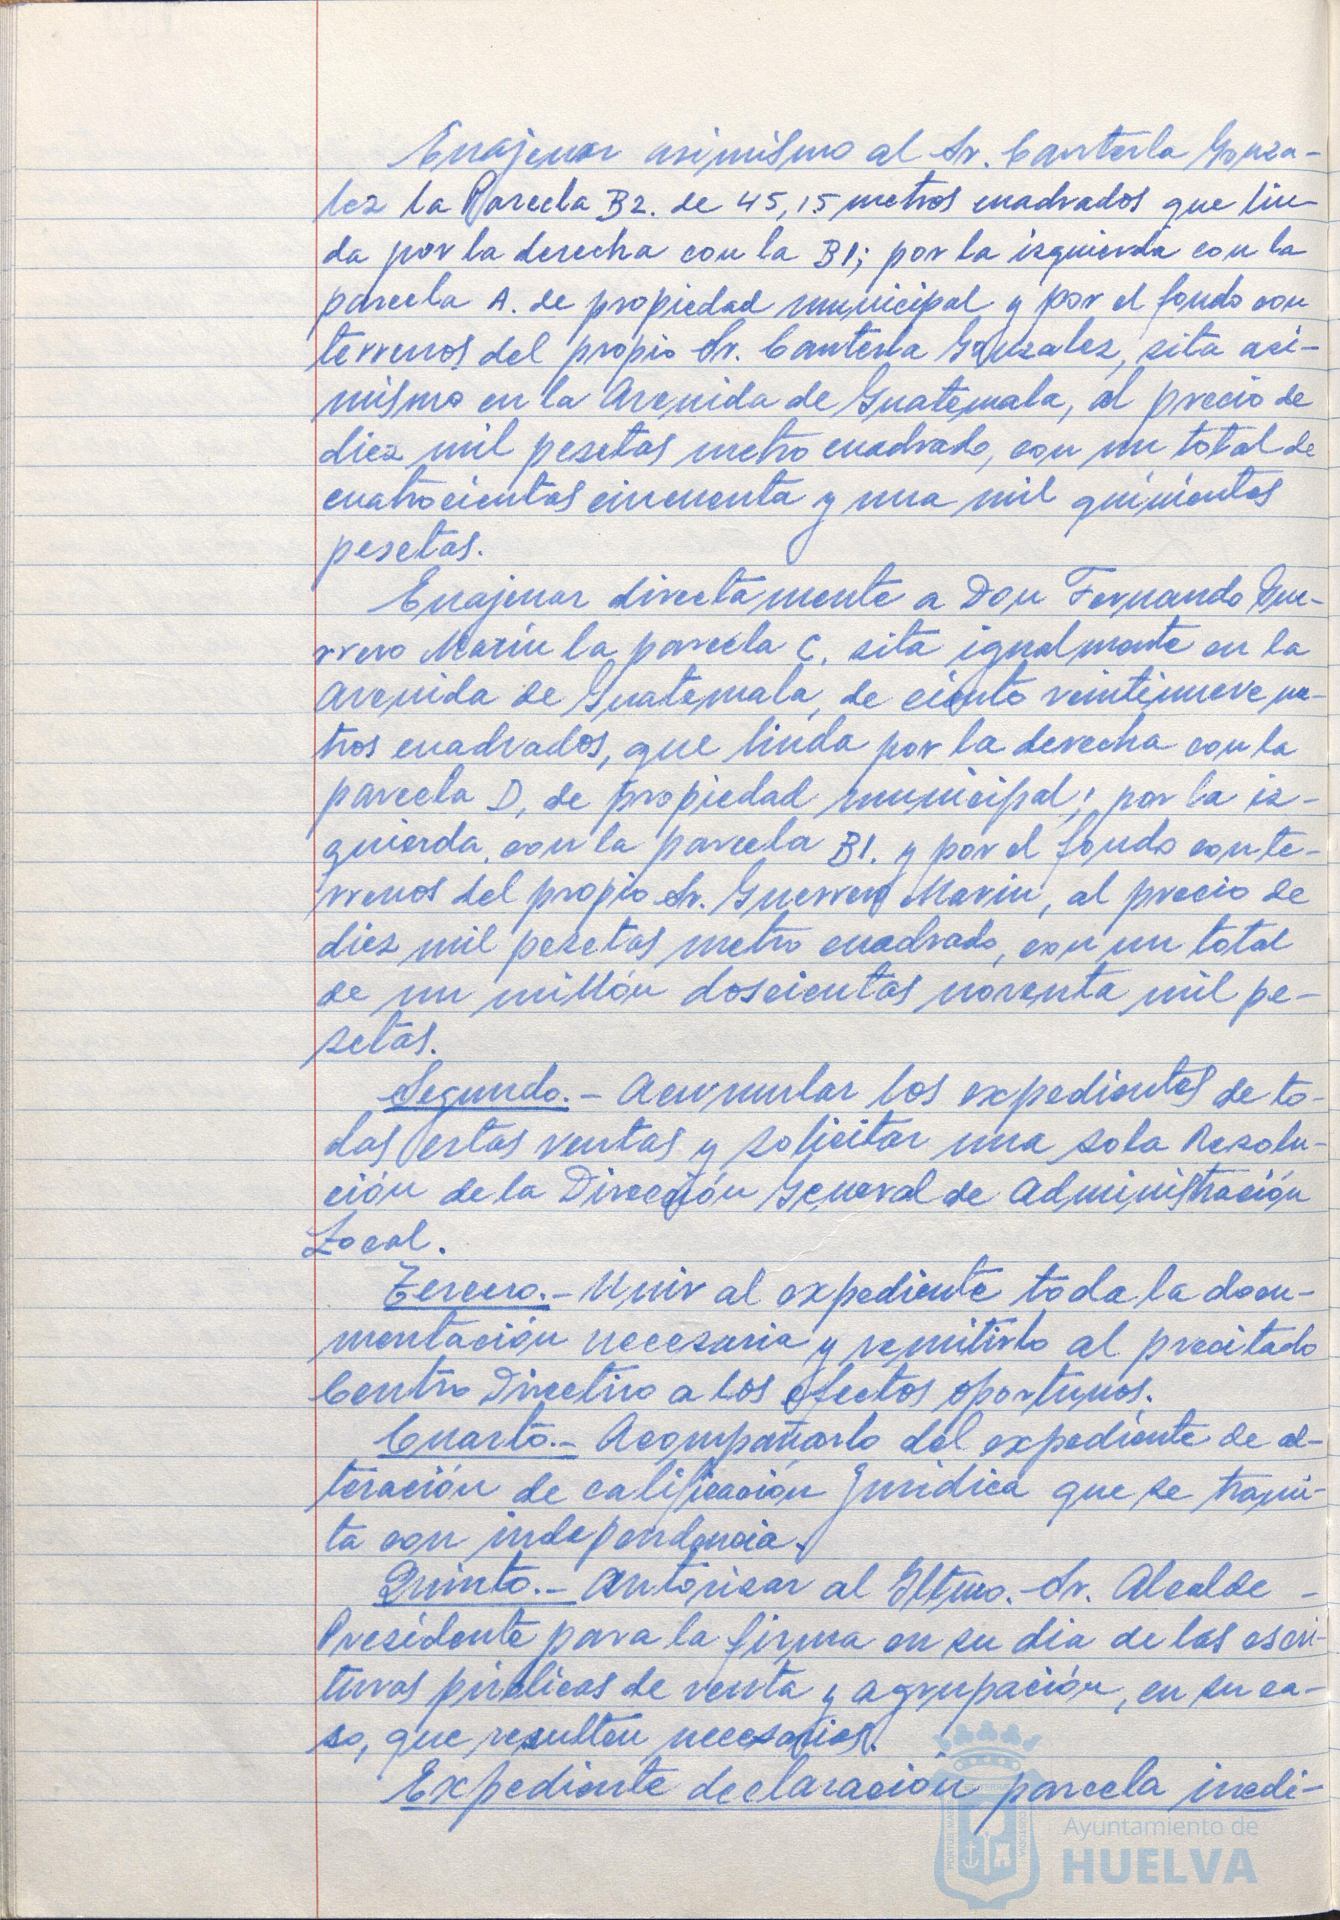 Enajenar asimismo al Sr. Canterla Gonza-
lez la Parcela B2. de 45,15 metros cuadrados que lin-
da por la derecha con la B1; por la izquierda con la
parcela A. de propiedad municipal y por el fondo con
terrenos del propio Sr. Canterla Gonzalez, sita asi-
mismo en la Avenida de Guatemala, al precio de
diez mil pesetas metro cuadrado, con un total de
cuatrocientas cincuenta y una mil quinientas
pesetas.
Enajenar directamente a Don Fernando Gue-
rrero Marín la parcela C. sita igualmente en la
Avenida de Guatemala, de ciento veintinueve me-
tros cuadrados, que linda por la derecha con la
parcela D, de propiedad municipal; por la iz-
quierda, con la parcela B1. y por el fondo con te-
rrenos del propio Sr. Guerrero Marin, al precio de
diez mil pesetas metro cuadrado, con un total
de un millón doscientas noventa mil pe-
setas.
Segundo.- Acumular los expedientes de to-
das estas ventas y solicitar una sola Resolu-
ción de la Dirección General de Administración
Local.
Tercero.- Unir al expediente toda la docu-
mentación necesaria y remitirlo al precitado
Centro Directivo a los efectos oportunos.
Cuarto.- Acompañarlo del expediente de al-
teración de calificación Jurídica que se trami-
ta con independencia.
Quinto.- Autorizar al Iltmo. Sr. Alcalde -
Presidente para la firma en su dia de las escri-
turas públicas de venta y agrupación, en su ca-
so, que resulten necesarias.
Expediente declaración parcela inedi-
Ayuntamiento de
HUELVA